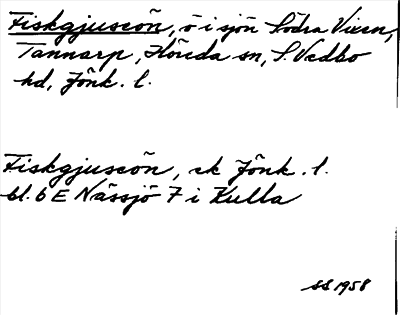 Fiskgjuseön, ö i sjön Södra Vixen,
Tannarp, Höreda sn, S. Vedbo
hd, Jönk. l.
Fiskgjuseön, ek Jönk. l.
bl. 6 E Nässjö 7 i Kulla
SS 1958